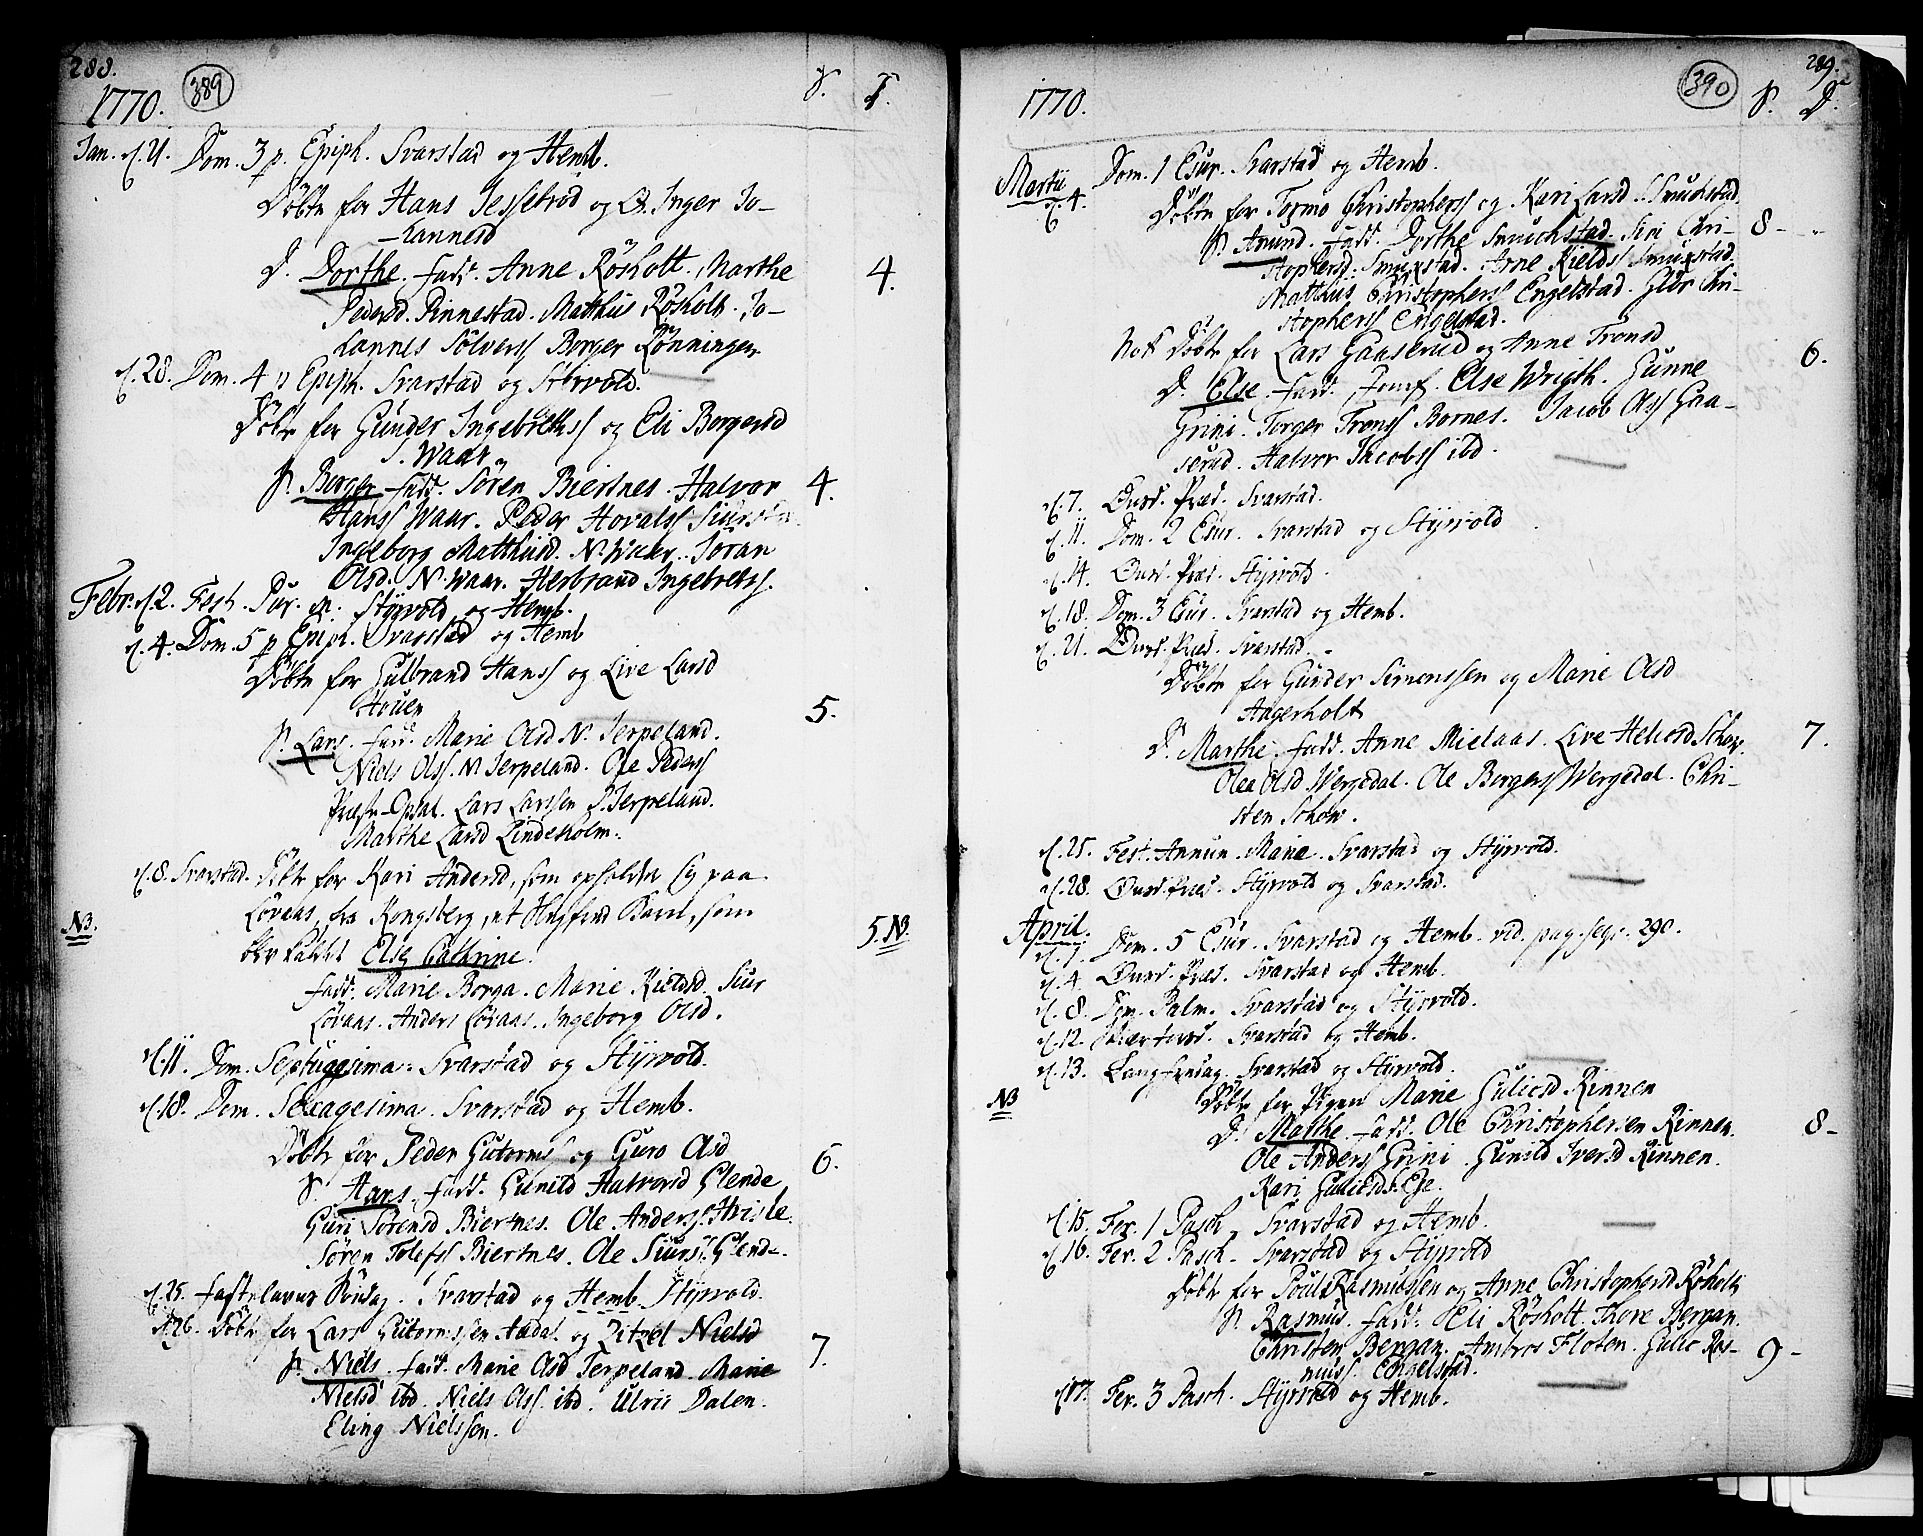 288.
389
1770. S. D.
Jan. d. 21. Dom. 3 p. Epiph. Svarstad og Hemb.
Döbte for Hans Jessebrod og Q. Inger Jo-
-hannesd
D. Dorthe. fadd. Anne Rösholt. Marthe 4.
Pedersd. Pinnestad. Matthis Rösholt. Jo-
hannes Sölverss Borger Rönningen
d. 28. Dom. 4 p Epiph. Svarstad og Styrvold.
Döbte for Gunder Ingebrethss og Eli Borgersd
S. Waar
S. Borger fadd. Sören Biertnes. Halvor 4.
Hanss Waar. Peder Hovalss
Ingeborg Matthisd. N. Waar. Joran
Olsd. N. Waar. Herbrand Ingebretss.
Febr. d. 2. Fest. Pur. M. Styrvold og Hemb.
d. 4. Dom. 5 p Epiph. Svarstad og Hemb
Döbte for Gulbrand Hanss og Live Larsd
Houen 5.
S. Lars. fadd. Marie Olsd N. Jerpeland.
Niels Olss. N Jerpeland. Ole Pederss
Lars Larssen S. Jerpeland.
Marthe Larsd Lindeholm.
d. 8. Svarstad. Döbte for Kari Andersd, som opholder sig paa
NB. Lövaas, fra Kongsberg, et Barn, som 5. N.
blev kaldet Else Cathrine.
fadd. Marie Borga. Marie Kieldsd. Siur
Lövaas. Anders Lövaas. Ingeborg Olsd.
d. 11. Dom. Septuagesima. Svarstad og Styrvold.
d. 18. Dom. Sexagesima. Svarstad og Hemb.
Döbte for Peder Gutorms og Guro Olsd 6.
S. Hans. fadd. Gunild Halvorsd Glende
Guri Sörensd Biertnes. Ole Anderss
Sören Tolefss Biertnes. Ole Siurs. Glende.
d. 25. Fastelavns Söndag. Svarstad og Hemb Styrvold.
d. 26. Döbte for Lars Gutormssen Aadal og Zitzel Nielsd
S. Niels. fadd. Marie Olsd Jerpeland. Marie 7.
Nielsd ibd. Niels Olss. ibd. Ulrii Dalen.
Eling Nielssen.
289.
390
1770. S. D.
Martii d. 4. Dom. 1 Esur. Svarstad og Hemb.
Döbte for Tormo Christopherss og Kari Larsd
S. Anund. fadd. Dorthe Smuchstad. Siri Chri- 8 -
stophersd. Smuxstad. Arne Kieldss Smuxstad
Matthis Christopherss Engelstad. Guor Chri-
stopherss Engelstad.
Nok Döbte for Lars Gaaserud og Anne Tronsd 6.
D. Else. fadd. Jomf. Else Wrigth. Gunne
Grini. Torger Tronss Bornes. Jacob Olss Gaa-
serud. Halvor Jacobss ibd.
d. 7. Onsd. Præd. Svarstad.
d. 11. Dom. 2 Esur. Svarstad og Styrvold
d. 14. Onsd. Præd. Styrvold.
d. 18. Dom. 3 Esur. Svarstad og Hemb.
d. 21. Onsd. Præd. Svarstad.
Döbte for Gunder Simonssen og Marie Olsd
Aagerholt
D. Marthe. fadd. Anne Mielaas. Live 7.
Olea Olsd Wergedal. Ole Borgerss Wergedal. Chri-
sten Schow.
d. 25. Fest. Annun. Mariæ. Svarstad og Styrvold.
d. 28. Onsd. Præd. Styrvold og Svarstad.
April. d. 1. Dom. 5 Esur. Svarstad og Hemb. vid. pag. seqv. 290.
d. 4. Onsd. Præd. Svarstad og Hemb.
d. 8. Dom. Palm. Svarstad og Styrvold.
d. 12. Skiær torsd. Svarstad og Hemb.
d. 13. Langfredag. Svarstad og Styrvold.
NB Döbte for Pigen Marie Guliesd Rinnen
D. Marthe. fadd. Ole Christophersen Rinnen. 8 -
Ole Anderss Grini. Gunild Iversd Rinnen.
Kari Guliesd. Ege.
d. 15. Fer. 1 Pasch. Svarstad og Hemb.
d. 16. Fer. 2 Pasch. Svarstad og Styrvold
Döbte for Poul Rasmussen og Anne Christophersd Rösholt
S. Rasmus. fadd. Eli Rösholt. Thore Bergan.
Christen Bergan. Ambros Floten. Gulic Ras- 9 -
muss. Engelstad.
d. 17. Fer. 3 Pasch. Styrvold og Hemb.